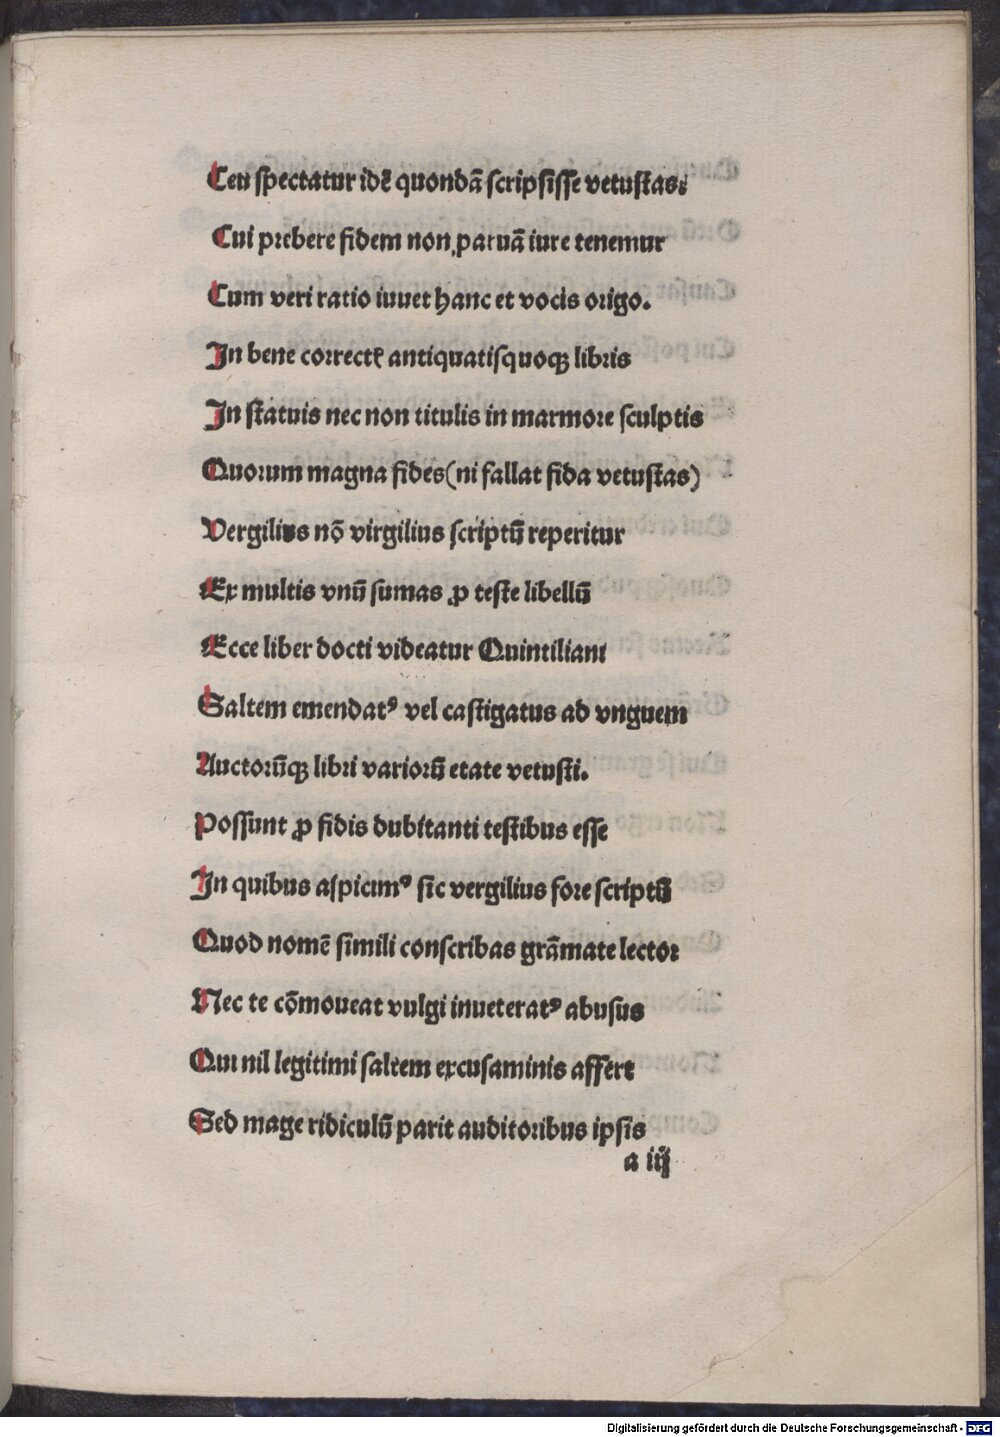 Ceu spectatur idē quondā scripsisse vetustas:
Cui prebere fidem non paruā iure tenemur
Cum veri ratio iuuet hanc et vocis origo.
In bene correctꝭ antiquatisquoqꝫ libris
In statuis nec non titulis in marmore sculptis
Quorum magna fides(ni fallat fida vetustas)
Vergilius nō virgilius scriptū reperitur
Ex multis vnū sumas ꝓ teste libellū
Ecce liber docti videatur Quintiliani
Saltem emendatꝰ vel castigatus ad vnguem
Auctorūqꝫ libri variorū etate vetusti.
Possunt ꝓ fidis dubitanti testibus esse
In quibus aspicimꝰ sic vergilius fore scriptū
Quod nomē simili conscribas grāmate lector
Nec te cōmoueat vulgi inueteratꝰ abusus
Qui nil legitimi saltem excusaminis affert
Sed mage ridiculū parit auditoribus ipsis
a iij
Digitalisierung gefördert durch die Deutsche Forschungsgemeinschaft - DFG